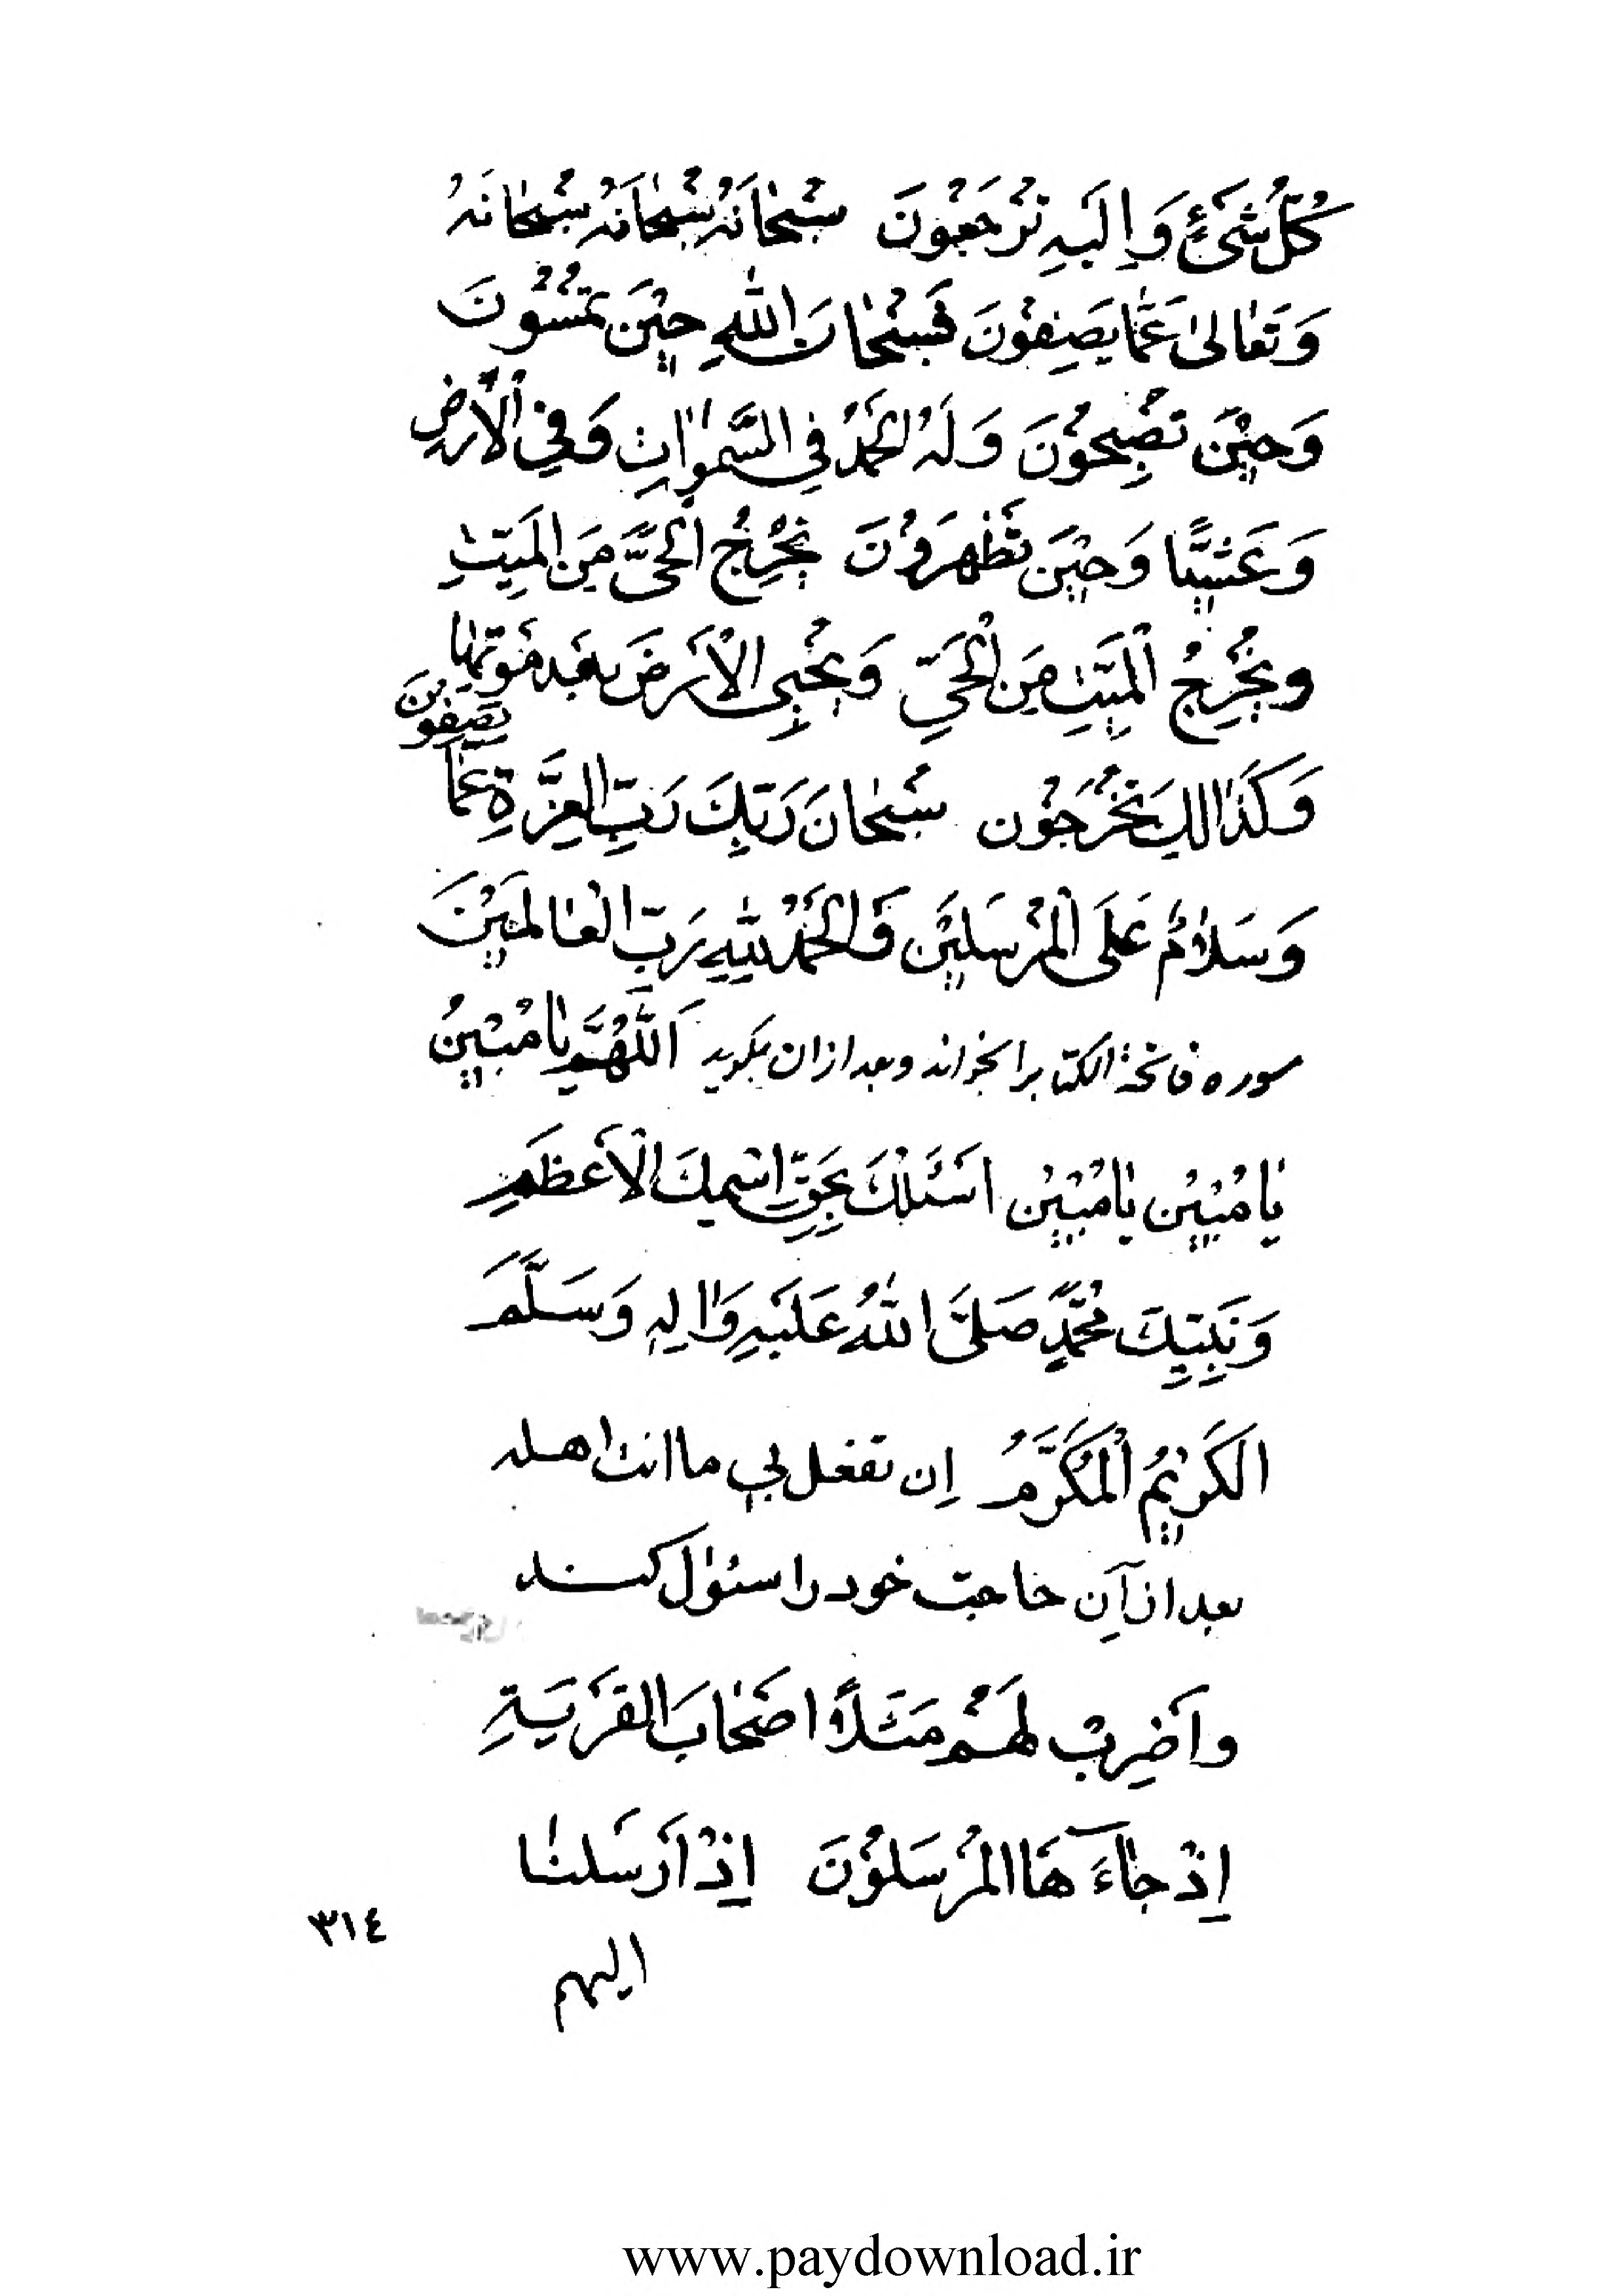 كُلِّ شَىْءٍ وَاِلَيْهِ تُرْجَعُونَ سُبْحانَهُ سُبْحانَهُ سُبْحانَهُ
وَتَعٰالىٰ عَمّٰا يَصِفُونَ فَسُبْحٰانَ اللّٰهِ حِيْنَ تُمْسُوُنَ
وَحِيْنَ تُصْبِحُوُنَ وَلَهُ الْحَمْدُ فِي السَّمٰوٰاتِ وَفِي الْاَرْضِ
وَعَشِيًّا وَحِيْنَ تُظْهِرَوُنَ يُخْرِجُ الْحَىَّ مِنَ الْمَيِّتِ
وَيُخْرِجُ الْمَيِّتِ مِنَ الْحَيِّ وَيُحْيِى الْاَرْضَ بَعْدَ مَوْتِهٰا
وَكَذٰالِكَ تُخْرَجَوُنَ سُبْحٰانَ رَبِّكَ رَبِّ الْعِزَّةِ عَمّٰا يَصِفُونَ
وَسَلاٰمٌ عَلَى الْمُرْسَليْنَ وَالْحَمْدُ لِلّٰهِ رَبِّ الْعٰالَمَيْنَ
سوره فاتحة الكتاب را بخواند و بعد از ان بگويد اَللّٰهُمَّ يٰا مُبيْنُ
يٰا مُبيْن يٰا مُبيْن اَسْئَلُكَ بِحَقِّ اسْمِكَ الْاَعْظَمِ
وَنَبِيِّكَ مُحَمَّدٍ صَلَّى اللّٰهُ عَلَيْهِ وَاٰلِهِ وَسَلَّمَ
الْكَريْمُ الْمُكَرَّمُ اِن تفعل بي ما انت اهله
بعد از آن حاجت خود را سئوال كند
واَضْرِبْ لَهُمْ مَثَلاً اَصْحٰابَ الْقَرْيَةِ
اِذْ جٰاءَ هَا الْمُرْسَلوُنَ اِذْ اَرْسَلْنٰا
٣١٤
اليهم
www.paydownload.ir